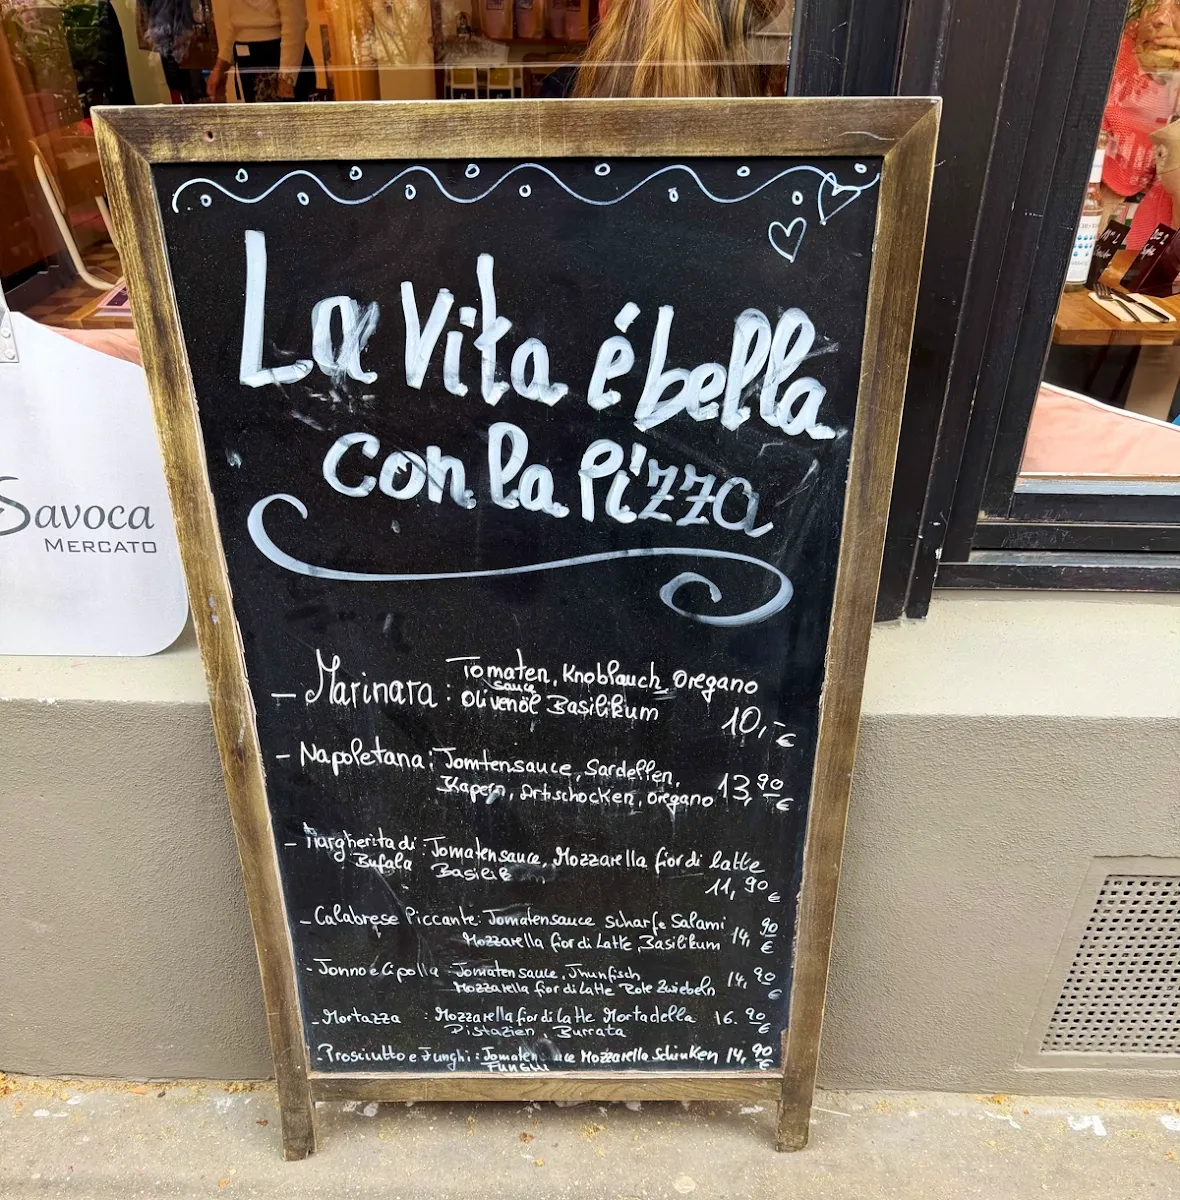 La Vita é bella
con la Pizza
Savoca
MERCATO
– Marinara : Tomaten, Knoblauch, Oregano
sauce
Olivenöl Basilikum 10,-€
– Napoletana: Tomtensauce, Sardellen,
Kapern, Artischocken, Oregano 13,90 €
– Margherita di : Tomatensauce, Mozzarella fior di latte
Bufala Basilik 11,90 €
– Calabrese Piccante: Tomatensauce scharfe Salami 14,90 €
Mozzarella fior di Latte, Basilikum
- Tonno e Cipolla : Tomatensauce, Thunfisch 14,90 €
Mozzarella fior di Latte Rote Zwiebeln
- Mortazza : Mozzarella fior di Latte Mortadella 16.90 €
Pistazien, Burrata
- Prosciutto e Funghi : Tomaten Mozzarella Schinken 14,90 €
Funghi